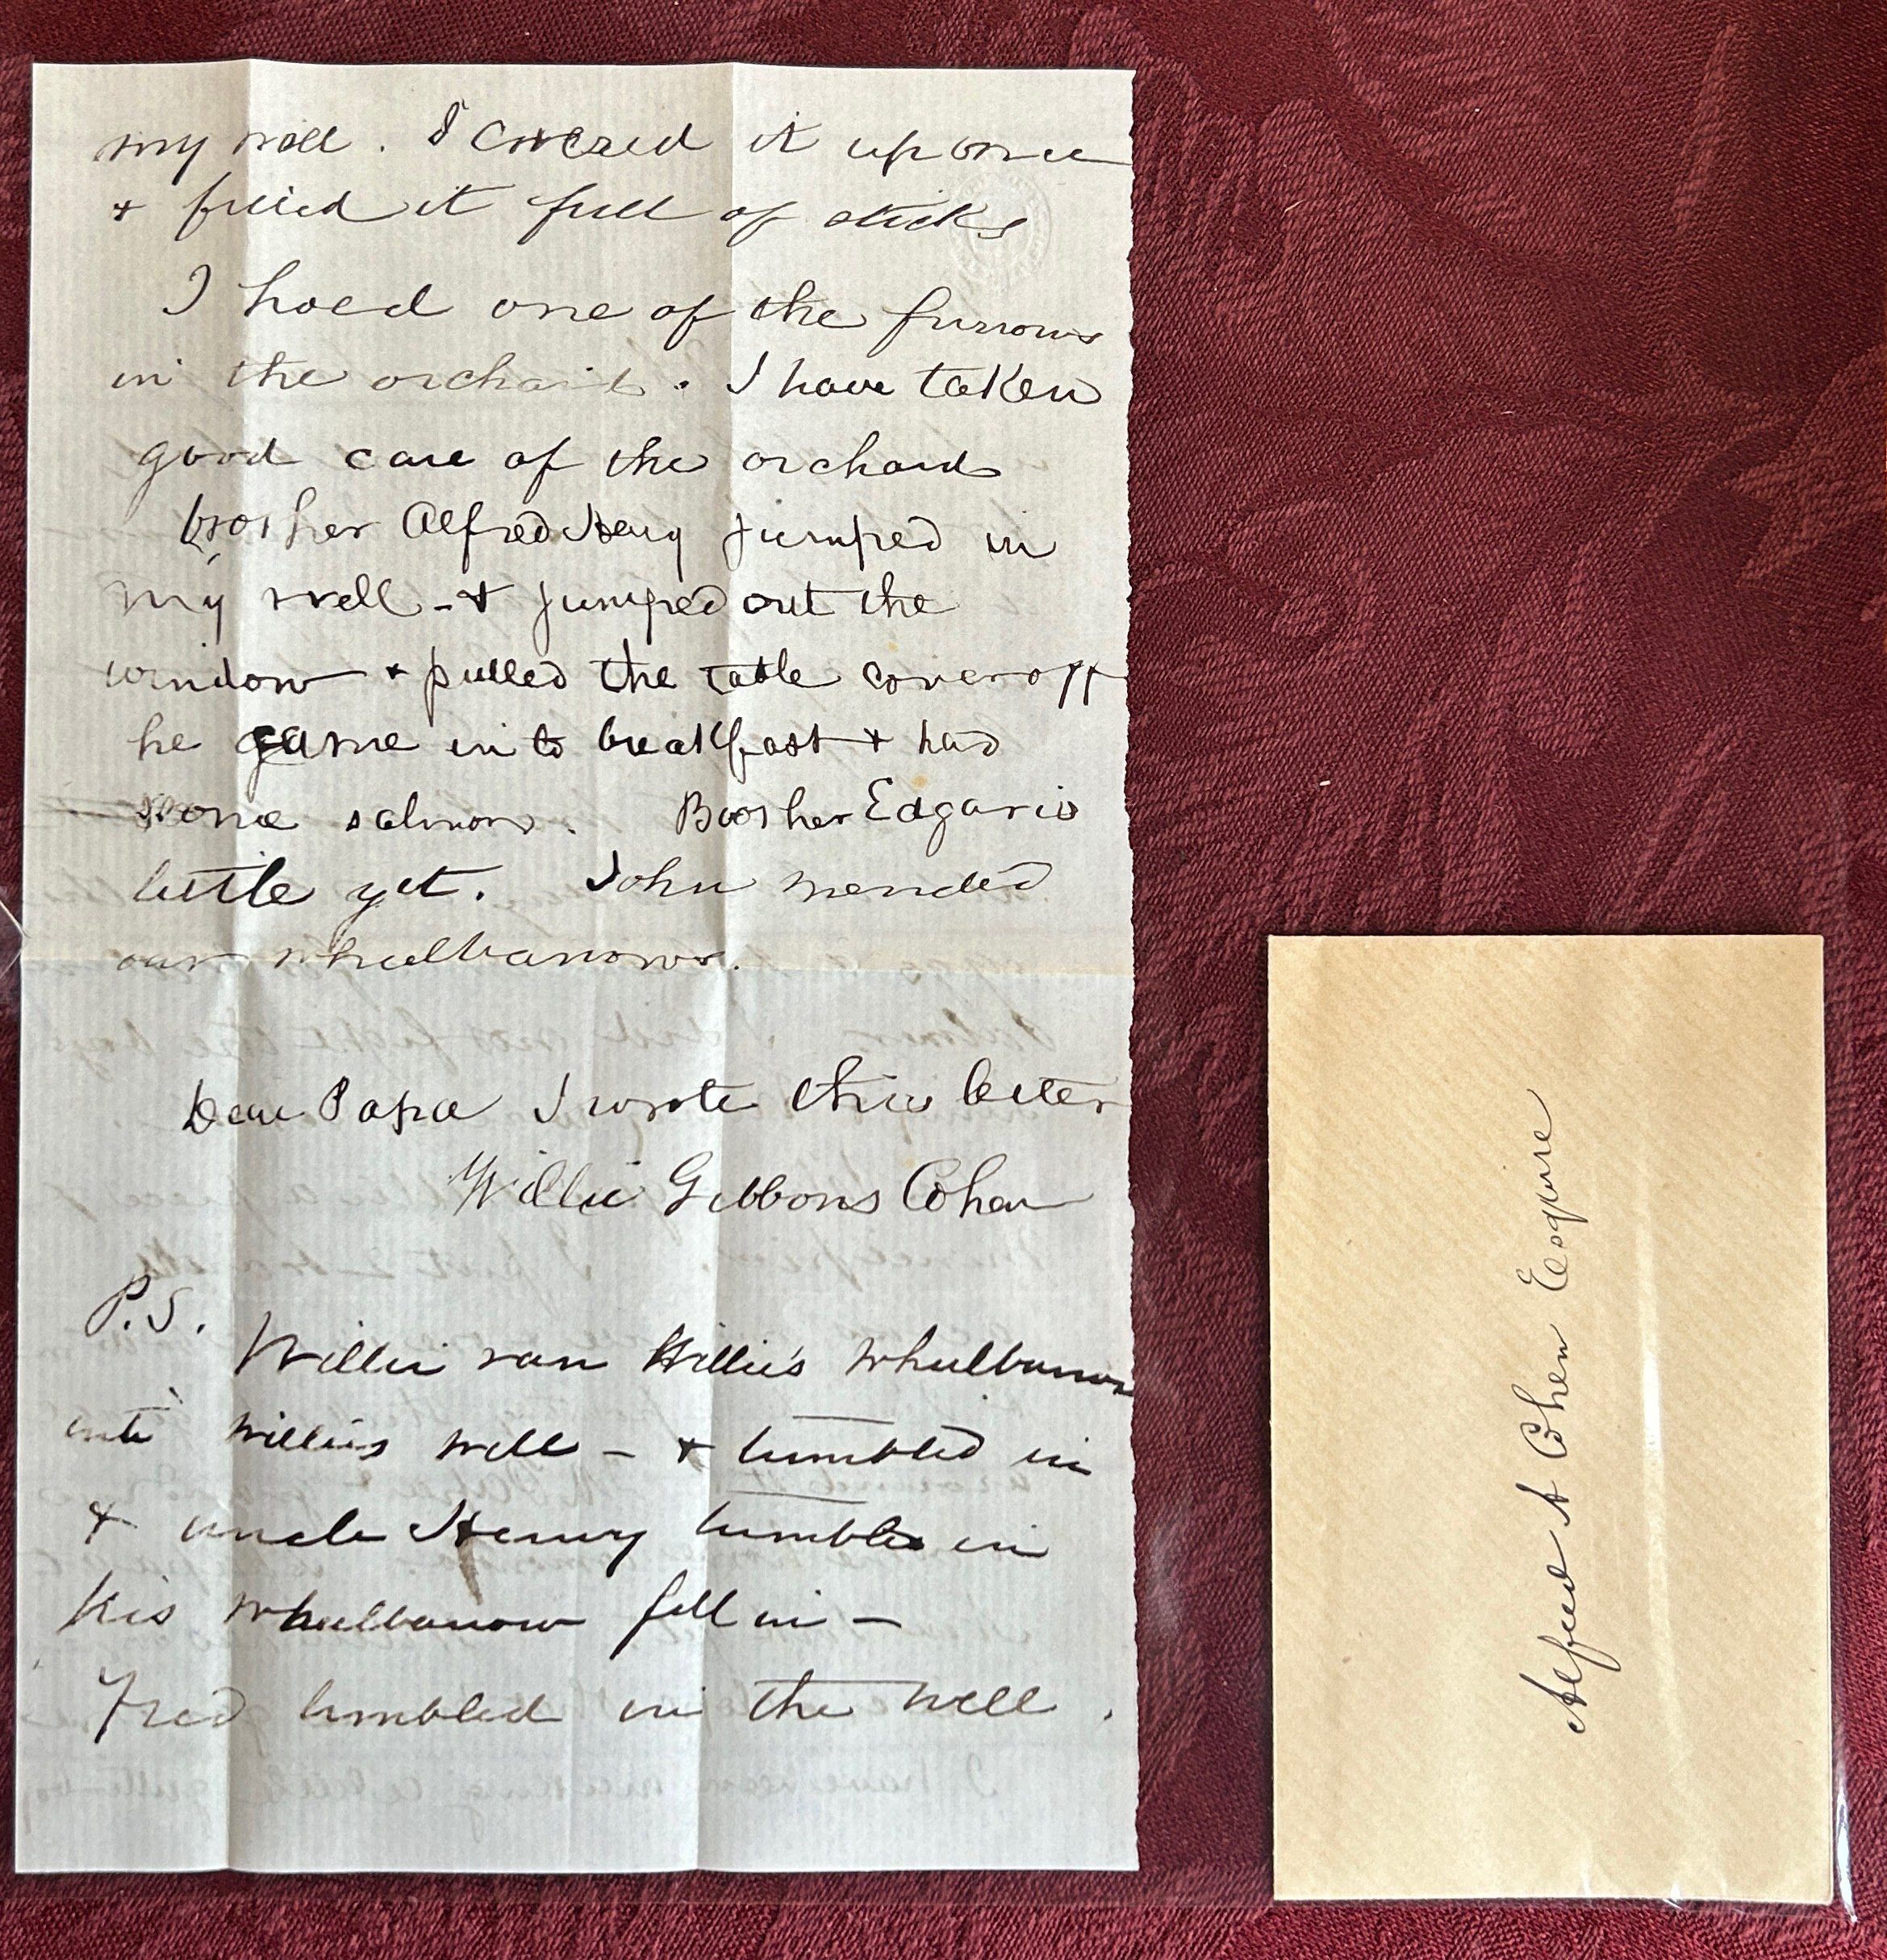 my well. I covered it up once
+ filled it full of sticks
I hoed one of the furrows
in the orchard. I have taken
good care of the orchard
brother Alfred Henry jumped in
my well - + jumped out the
window + pulled the table cover off
he came in to breakfast + had
some salmon. Brother Edgar is
little yet. John mended
our wheelbarrows.
Dear Papa I wrote this letter
Willie Gibbons Cohen
P.S.
Willie ran Willie's wheelbarrow
into Willies well - + tumbled in
+ uncle Henry tumbled in
his wheelbarrow fell in -
Fred tumbled in the well.
Alfred A Cohen Esquire